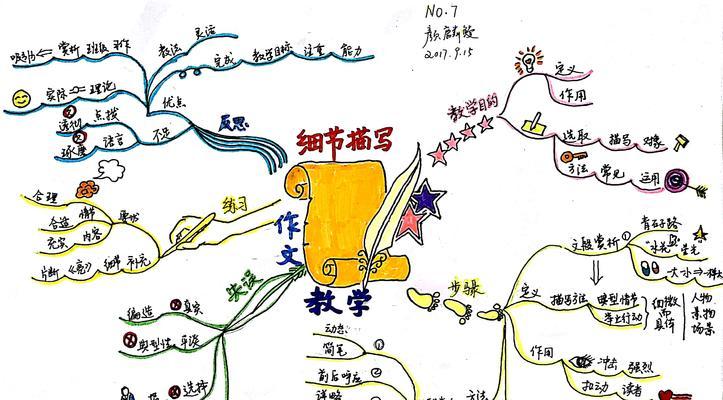 NO.7
2017.9.15
细节描写
作文
教学
教学目的
定义
作用
选取 描写 对象
方法 常见 运用
步骤
文段赏析 ①
青石子路
大小
定义
描写方法
典型情节
举止行动
细微而具体
人物
景物
场景
作用
冲击 强烈
拉动 读者
方法
动态
简笔 ①
前后呼应 ②
详略
反思
优点
教法 灵活
完成 教学目标 注重 能力
赏析 班级
实际 理论
不足
点拨
语言
练习
要求
合理
合适 情节
充实 内容
补充
细节
失误
真实
编造
典型性 平淡
选择